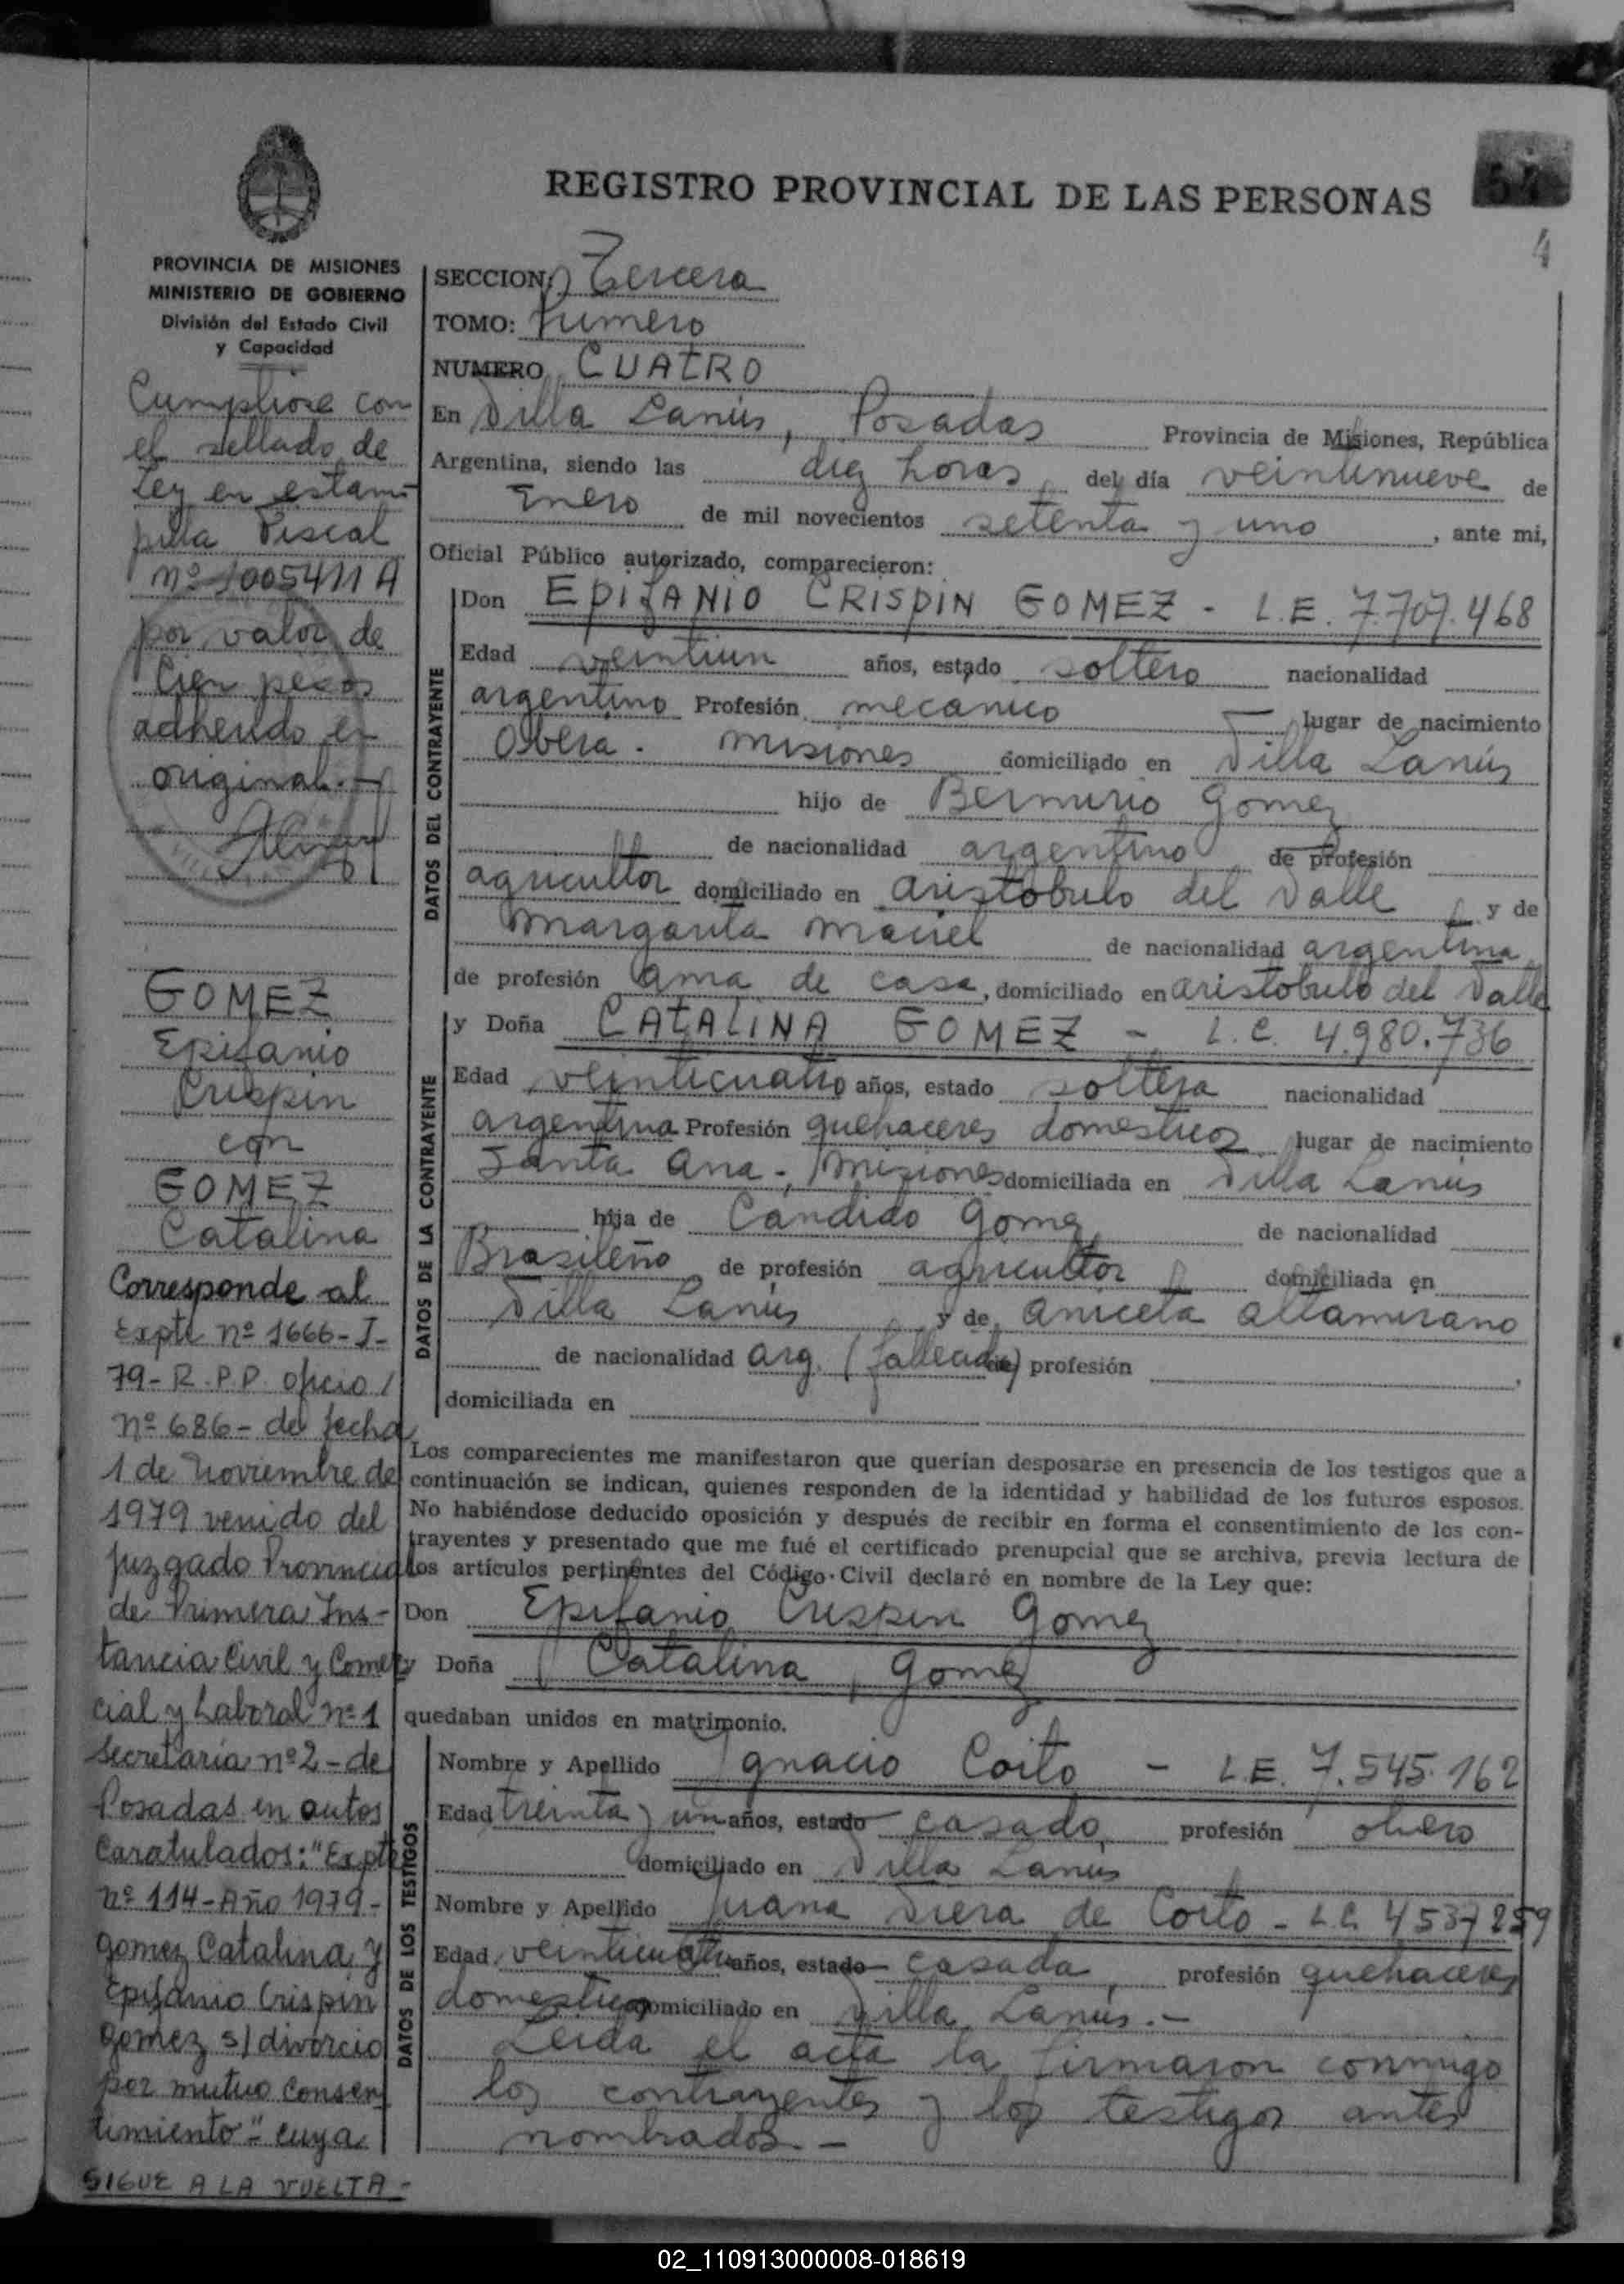 REGISTRO PROVINCIAL DE LAS PERSONAS
54
4
PROVINCIA DE MISIONES
MINISTERIO DE GOBIERNO
División del Estado Civil
y Capacidad
Cumpliose con
el sellado de
Ley en estam-
pilla Fiscal
nº 1005411 A
por valor de
Cien pesos
adherido en
original.-
GOMEZ
Epifanio
Crispin
con
GOMEZ
Catalina
Corresponde al
Expte nº 1666-J-
79-R.P.P. oficio/
nº 686- de fecha
1 de Noviembre de
1979 venido del
Juzgado Provincial
de Primera Ins-
tancia Civil y Comer
cial y Laboral nº 1
Secretaría nº 2 - de
Posadas en autos
Caratulados: "Expte
nº 114-Año 1979-
Gomez Catalina y
Epifanio Crispin
Gomez s/ divorcio
por mutuo consen
timiento"- cuya
SIGUE A LA VUELTA-
SECCION: Tercera
TOMO: Primero
NUMERO CUATRO
En Villa Lanús, Posadas Provincia de Misiones, República
Argentina, siendo las diez horas del día veintinueve de
Enero de mil novecientos setenta y uno, ante mi,
Oficial Público autorizado, comparecieron:
DATOS DEL CONTRAYENTE
Don EPIFANIO CRISPIN GOMEZ - L.E. 7.707.468
Edad veintiun años, estado soltero nacionalidad
argentino Profesión mecanico lugar de nacimiento
Obera - Misiones domiciliado en Villa Lanús
hijo de Gomez
de nacionalidad argentino de profesión
agricultor domiciliado en Aristobulo del Valle y de
Margarita Maciel de nacionalidad argentina
de profesión ama de casa, domiciliado en Aristobulo del Valle
DATOS DE LA CONTRAYENTE
y Doña CATALINA GOMEZ - L.C. 4.980.736
Edad veinticuatro años, estado soltera nacionalidad
argentina Profesión quehaceres domesticos lugar de nacimiento
Santa Ana - Misiones domiciliada en Villa Lanús
hija de Candido Gomez de nacionalidad
Brasileño de profesión agricultor domiciliada en
Villa Lanús y de Aniceta Altamirano
de nacionalidad arg. (fallecida) profesión
domiciliada en
Los comparecientes me manifestaron que querían desposarse en presencia de los testigos que a
continuación se indican, quienes responden de la identidad y habilidad de los futuros esposos.
No habiéndose deducido oposición y después de recibir en forma el consentimiento de los con-
trayentes y presentado que me fué el certificado prenupcial que se archiva, previa lectura de
los artículos pertinentes del Código Civil declaré en nombre de la Ley que:
Don Epifanio Crispin Gomez
y Doña Catalina Gomez
quedaban unidos en matrimonio.
DATOS DE LOS TESTIGOS
Nombre y Apellido Ignacio Coito - L.E. 7.545.162
Edad treinta y un años, estado casado profesión obrero
domiciliado en Villa Lanús
Nombre y Apellido Juana Viera de Coito - L.C. 4537259
Edad veinticuatro años, estado casada profesión quehaceres
domesticos domiciliado en Villa Lanús.-
Leida el acta la firmaron conmigo
los contrayentes y los testigos antes
nombrados.-
02_110913000008-018619